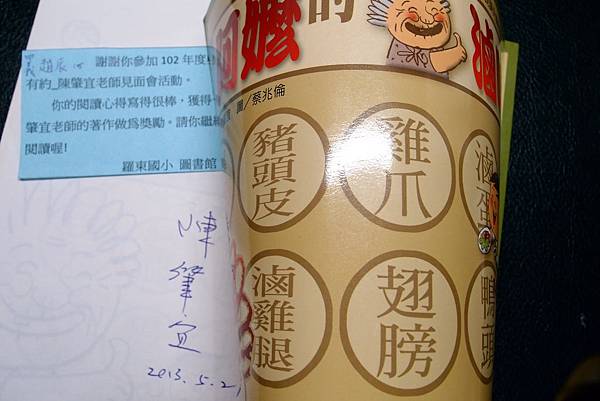 謝謝你參加 102 年度
有約_陳肇宜老師見面會活動。
你的閱讀心得寫得很棒,獲得
肇宜老師的著作做為獎勵。請你繼
閱讀喔!
羅東國小 圖書館
陳
肇
宜
2013.5.21
阿嬤的滷
圖/蔡兆倫
豬頭皮
雞爪
滷蛋
滷雞腿
翅膀
鴨頭